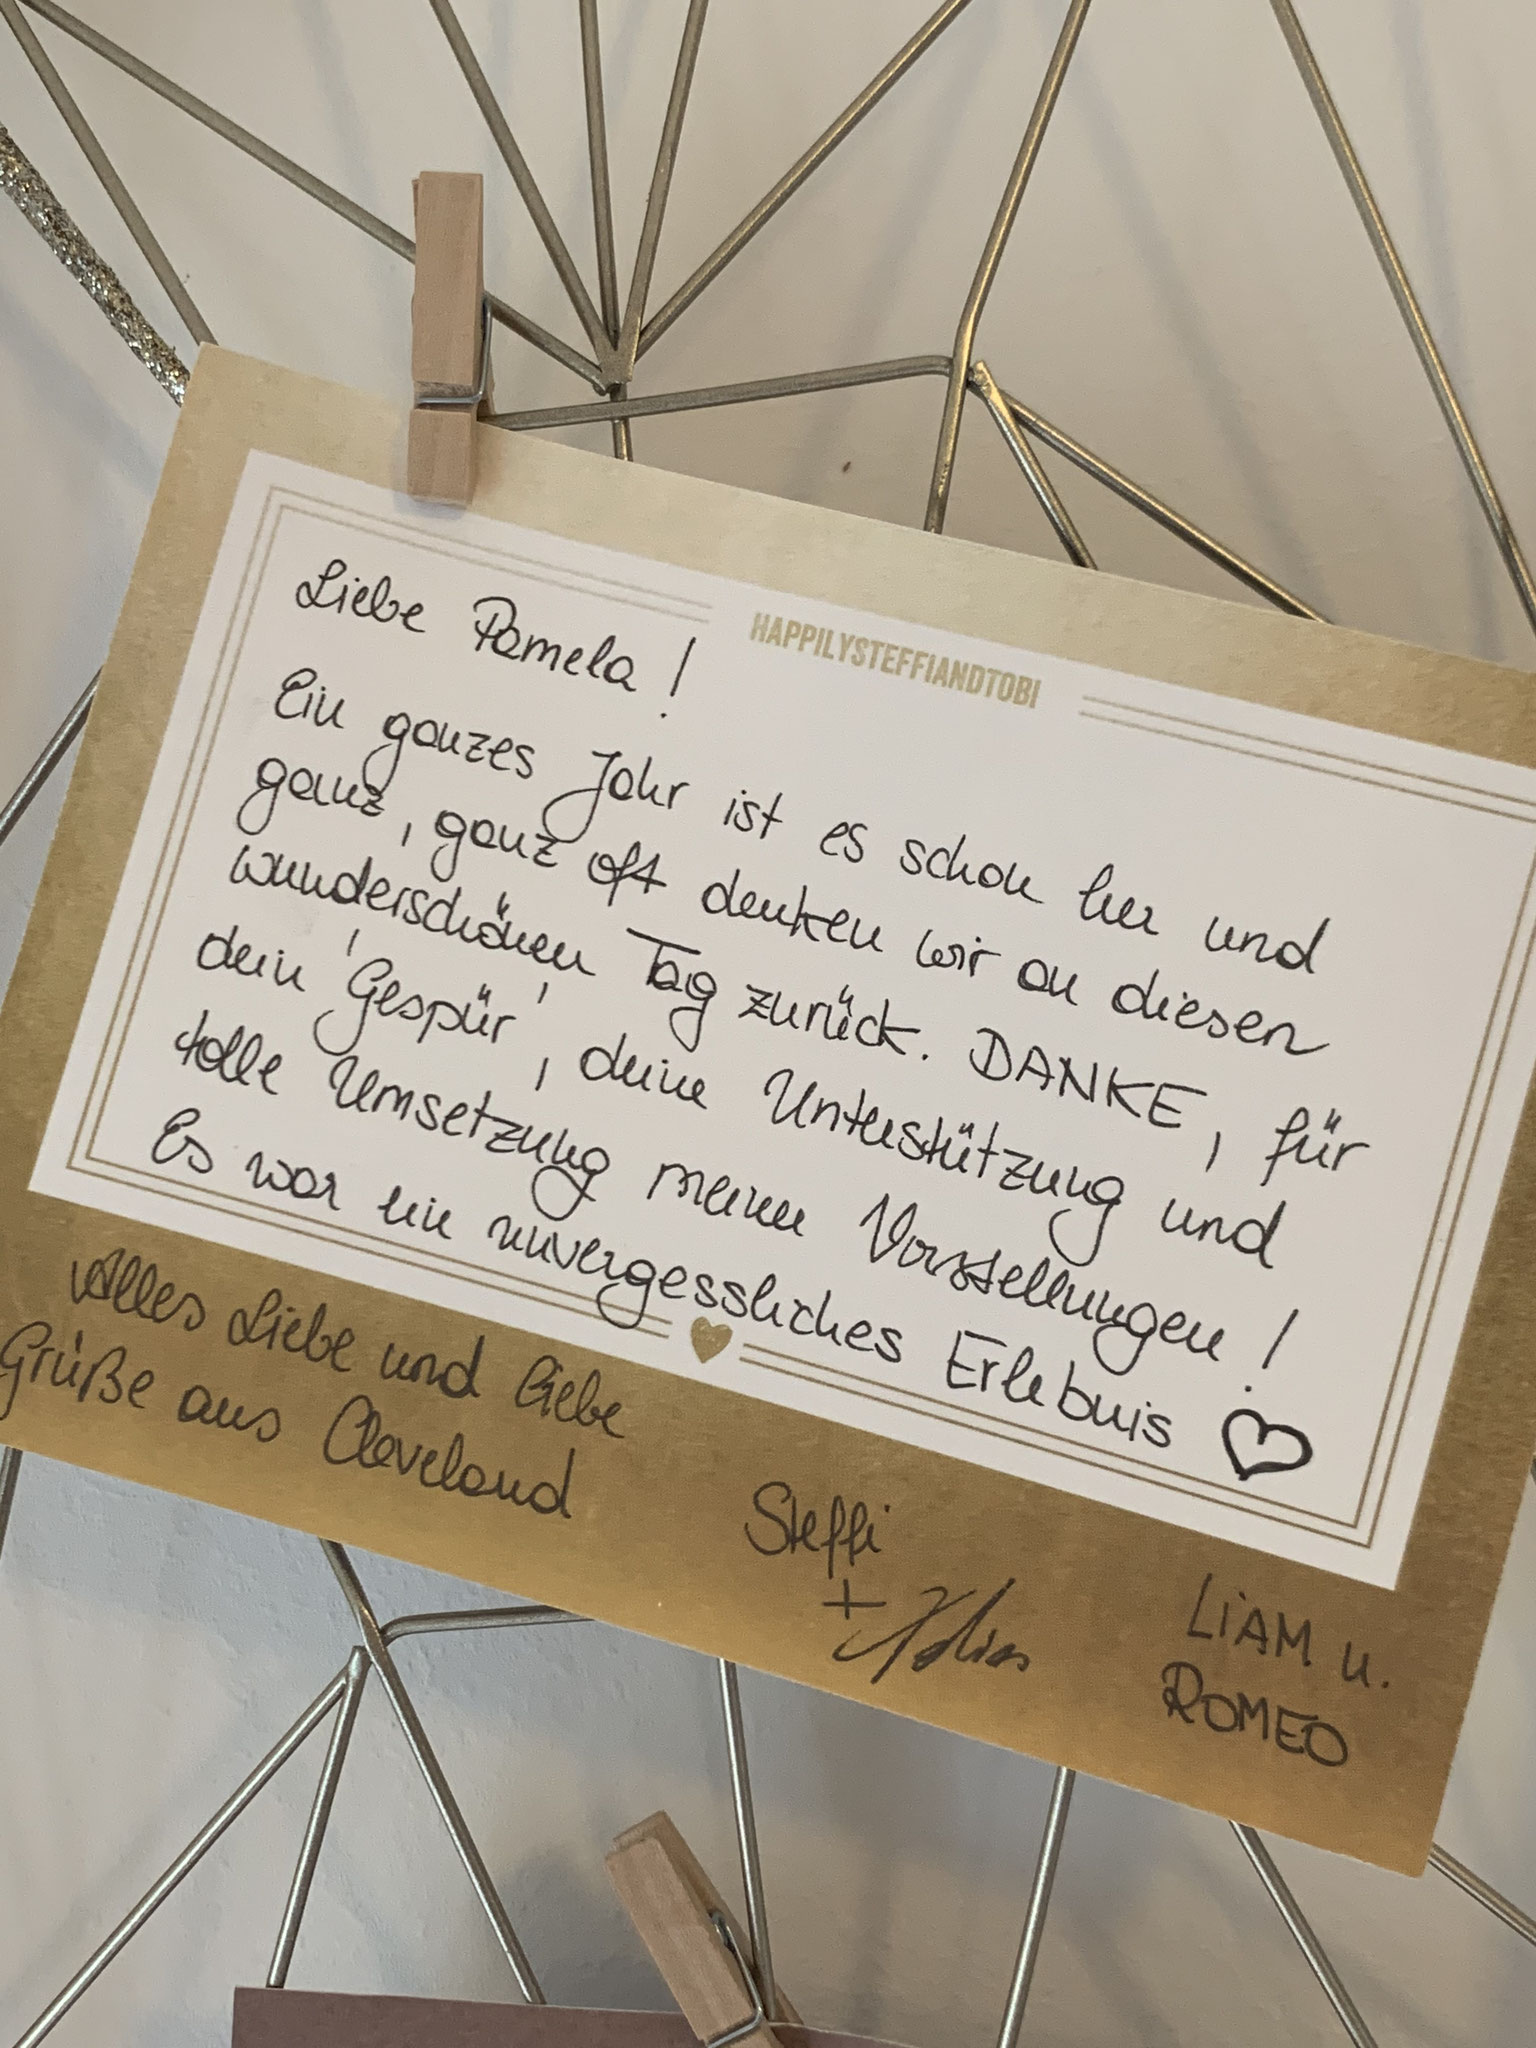 HAPPILYSTEFFIANDTOBI
Liebe Pamela!
Ein ganzes Jahr ist es schon her und
ganz, ganz oft denken wir an diesen
wunderschönen Tag zurück. DANKE, für
dein 'Gespür', deine Unterstützung und
tolle Umsetzung meiner Vorstellungen!
Es war ein unvergessliches Erlebnis ♡
Alles Liebe und liebe
Grüße aus Cleveland
Steffi
+ Tobias
LIAM u.
ROMEO